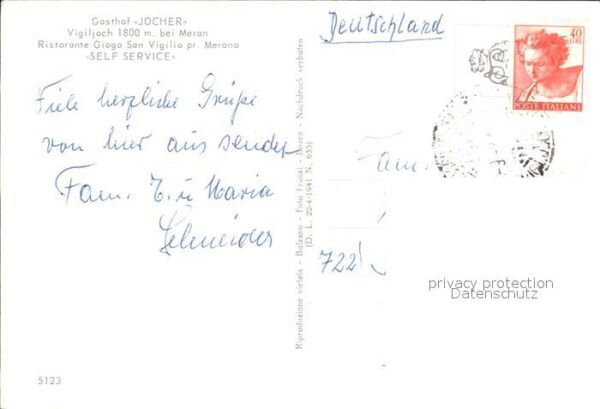 Gasthof »JOCHER«
Vigiljoch 1800 m. bei Meran
Ristorante Giogo San Vigilio pr. Merano
»SELF SERVICE«
Viele herzliche Grüße
von hier aus senden
Fam. E. u Maria
Schneider
5123
Riproduzione vietata - Bolzano - Foto Fränzl - Bozen - Nachdruck verboten
(D. L. 22-4-1941 N. 633)
Deutschland
40
LIRE
POSTE ITALIANE
Fam.
722
privacy protection
Datenschutz